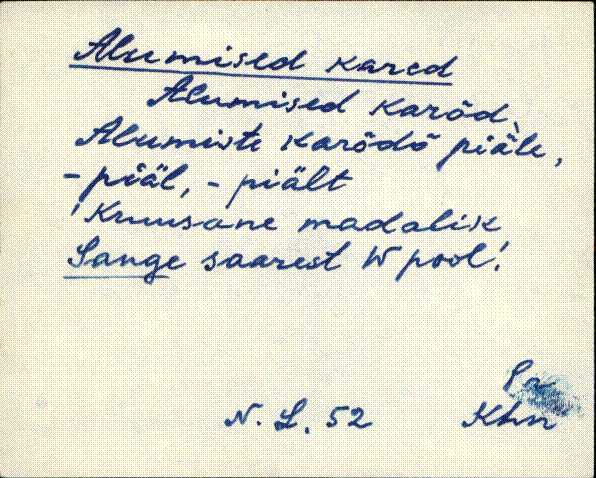 Alumised kared
Alumised karõd,
Alumiste karõdõ piäle,
- piäl, - piält
'Kruusane madalik
Sange saarest W pool!
Pä
N. L. 52 Khn